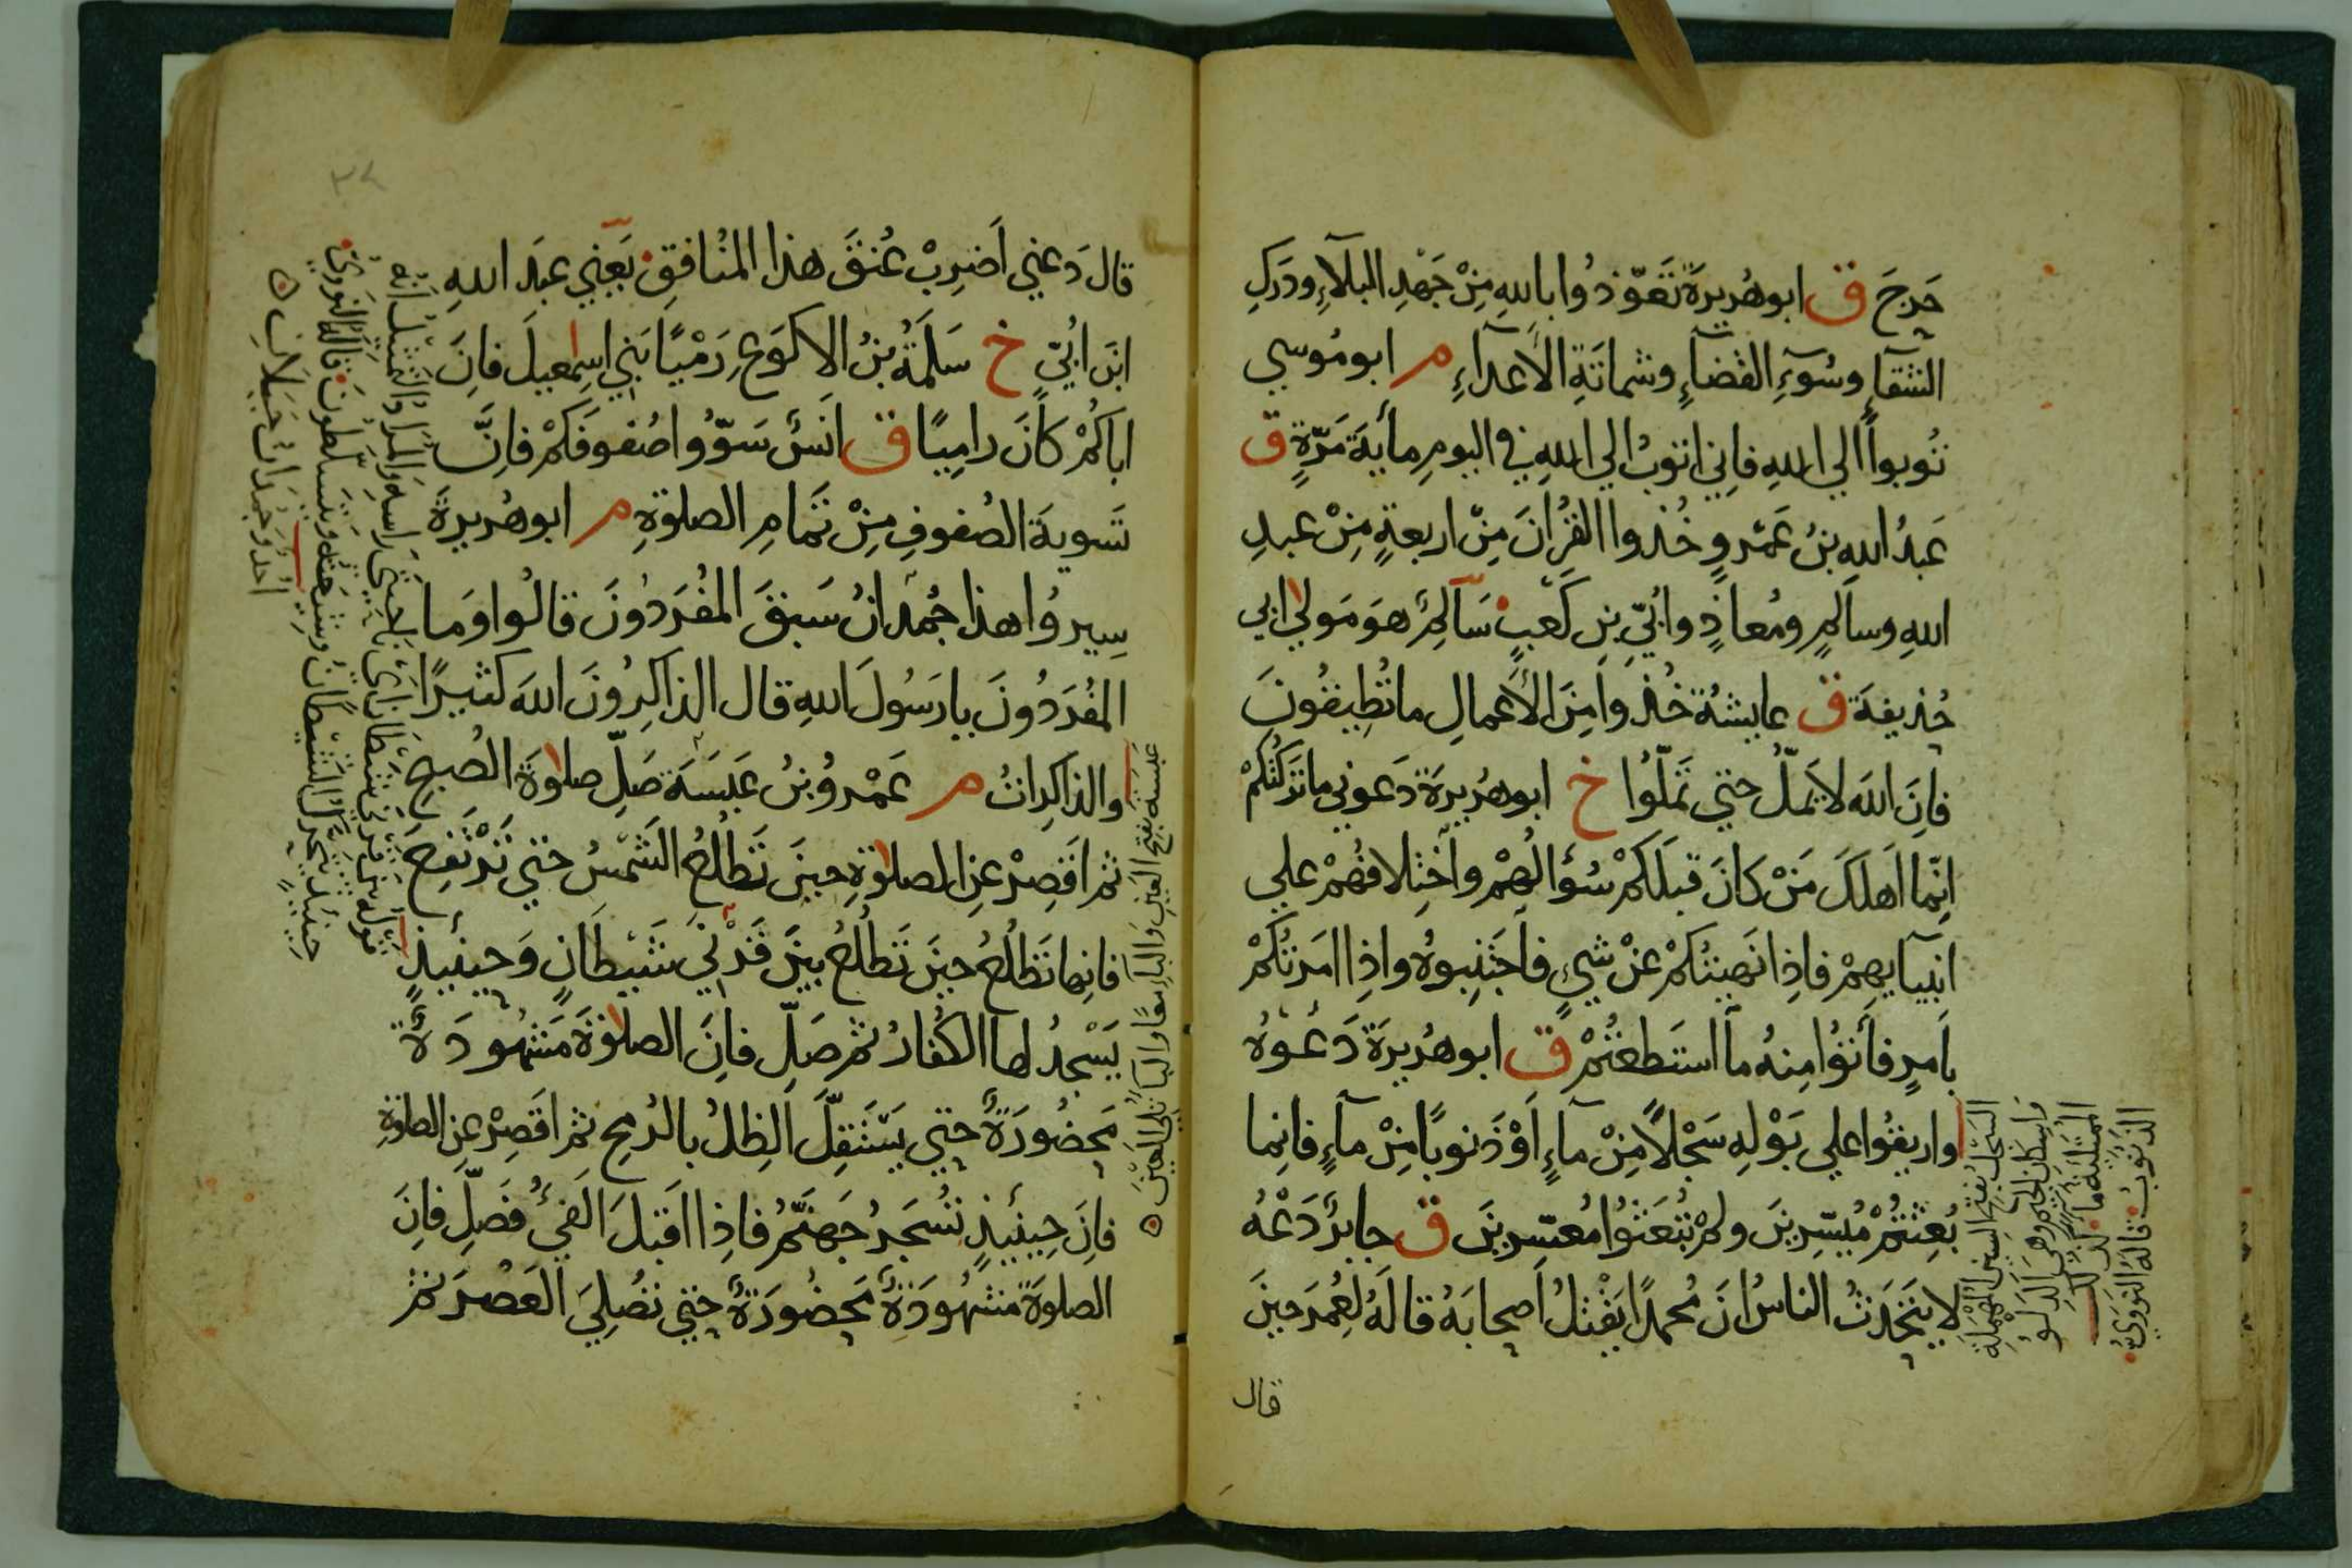 حَرجَ ق ابو هُريرةَ تَعَوّذوُا باللهِ مِنْ جَهْدِ البلآءِ ودَرَكِ
الشقآءِ وسُوٓءِ القضآءِ وشماتَةِ الأعدآءِ م ابو مُوسي
تُوبوا الي اللهِ فاِني اتوبُ الي اللهِ في اليومِ مأيةَ مَرّةٍ ق
عَبدُ اللهِ بنُ عَمْروٍ خُذوا القرُانَ مِنْ اربعةٍ مِنْ عبدِ
اللهِ وسالمٍ ومُعاذٍ واُبَيّ بنِ كَعْبٍ سَآلِمٌ هوَ مَولي ابي
حُذيفةَ ق عايشةُ خُذوا مِنَ الأعمالِ ما تُطِيقُونَ
فاِنَ اللهَ لا يَملُّ حتي تَملّوُا خ ابو هُريرةَ دَعوني ما تركتُكمْ
اِنّما اَهلكَ مَنْ كانَ قبلَكمْ سُؤالُهمْ واختِلافهُمْ علي
انبيآيهِمْ فاِذا نَهيتُكمْ عنْ شيٍ فاجتَنِبوهُ واذِا امَرتُكمْ
باَمرٍ فأتوُا مِنهُ ما استطعتُمْ ق ابو هُريرةَ دَعُوهُ
واريقوُا علي بَوْلهِ سَجْلاً مِنْ مآءٍ اَوْ ذَنوبًا مِنْ مآءٍ فانِما
بُعِثتُمْ مُيسّرِينَ ولمْ تُبعَثوُا مُعسّرِينَ ق جابرٌ دَعْهُ
لا يتَحَدَثُ الناسُ انَ مُحمدًا يَقْتلُ اَصحابَهُ قالَهُ لعُمرَ حينَ
قال
السَجْل بفتح السين المهملة
واِسكان الجيم وهى الدَلوُ
المُمْتَلِئَة مآء
الذَنُوبُ قالهُ النَوَوِيّ
قال دَعني اَضرِبْ عُنقَ هذا المنُافقِ يَعني عبدَ اللهِ
ابنَ ابُيّ خ سَلَمَةُ بنُ الاكوَعِ رَمْيًا بَني اسمِعيلَ فانِ
اباكُمْ كانَ رامِيًا ق انَسٌ سَوّوُا صُفوفَكمْ فانَّ
تَسويةَ الصُفوفِ مِنْ تَمامِ الصلوةِ م ابو هُريرةَ
سِيروُا هذا جُمدانُ سَبقَ المفُرَدوُنَ قالوُا ومَا
المفُرَدُونَ يا رَسُولَ اللهِ قال الذاكِرُونَ اللهَ كثيرًا
والذاكِراتُ م عَمْروُ بنُ عَبَسَةَ صَلِّ صلوةَ الصُبحِ
ثم اَقصِرْ عنِ الصلوةِ حينَ تَطلُعُ الشَمْسُ حتي تَرْتَفِعَ
فانِها تَطلُعُ حينَ تَطلُعُ بينَ قَرْنَيْ شَيطانٍ وَحينئيذٍ
يَسْجدُ لها الكُفارُ ثم صَلِّ فانَ الصلوةَ مَشْهودَةٌ
مَحضُورَةٌ حتي يَستقِلَّ الظِلُ بالرُمحِ ثم اقَصِرْ عنِ الصلوةِ
فانَ حِينئيذٍ تُسْجَرُ جَهنّمُ فاذِا اقبَلَ الفَيُ فَصَلِّ فانَ
الصلوةَ مشْهُودَةٌ مَحضُورَةٌ حتي تُصَليَ العَصْرَ ثم
عَبَسَة بفتح العَين والبآء معًا واليآ ثانى العَين
قوله بين قرنى شيطان
حينئيذ يتحرك الشيطان
قاله النَوَوِىّ
اُحُد وجمدان جَبَلان